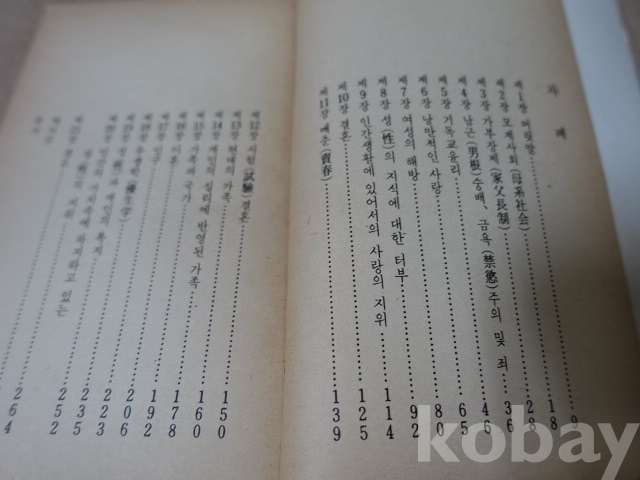 차 례
제1장 머릿말 9
제2장 모계사회 (母系社会) 18
제3장 가부장제 (家父長制) 28
제4장 남근 (男根) 숭배, 금욕 (禁慾) 주의 및 죄 36
제5장 기독교윤리 46
제6장 낭만적인 사랑 65
제7장 여성의 해방 80
제8장 성 (性) 의 지식에 대한 터부 92
제9장 인간생활에 있어서의 사랑의 지위 114
제10장 결혼 125
제11장 매춘 (賣春) 139
제12장 시험 (試驗) 결혼 150
제13장 현대의 가족 160
제14장 개인의 심리에 반영된 가족 178
제15장 가족과 국가 192
제16장 이혼 206
제17장 인구 223
제18장 우생학 (優生学) 235
제19장 성 (性) 과 개인의 복지 252
제20장 인간의 가치속에 차지하고 있는
성 (性) 의 지위 264
제21장 결론
kobay